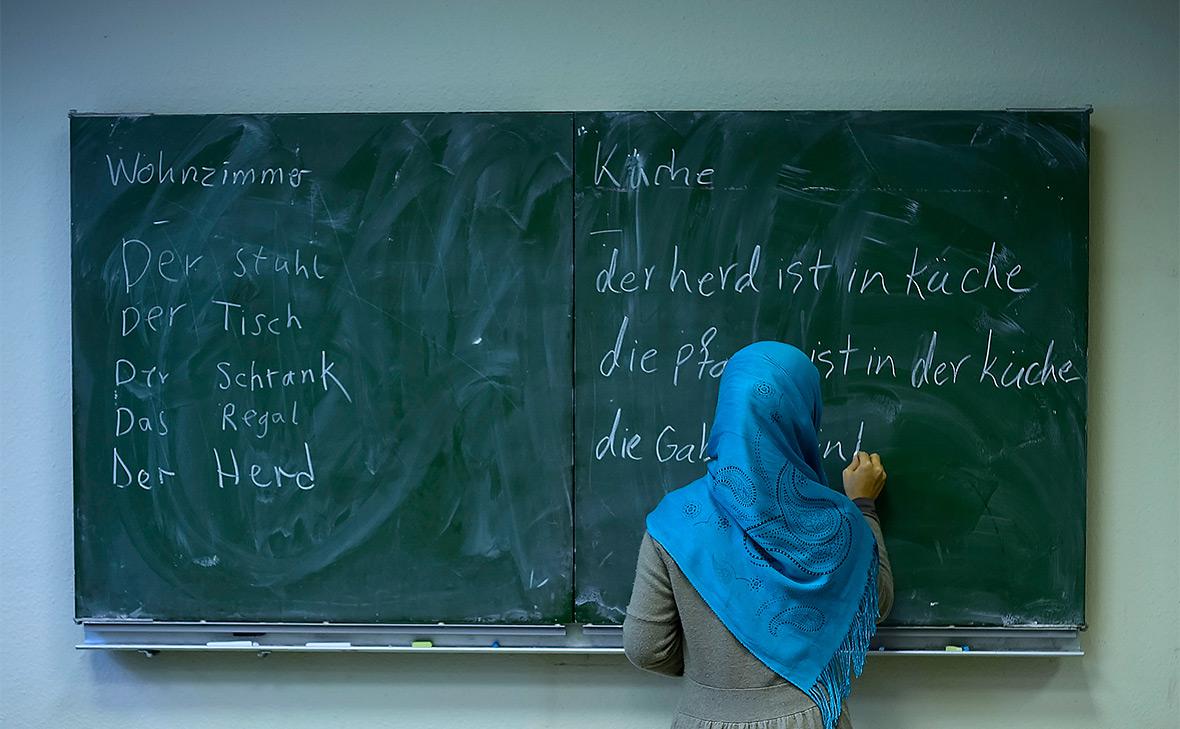 Wohnzimmer
Der Stuhl
Der Tisch
Der Schrank
Das Regal
Der Herd
Küche
der herd ist in küche
die ist in der küche
die